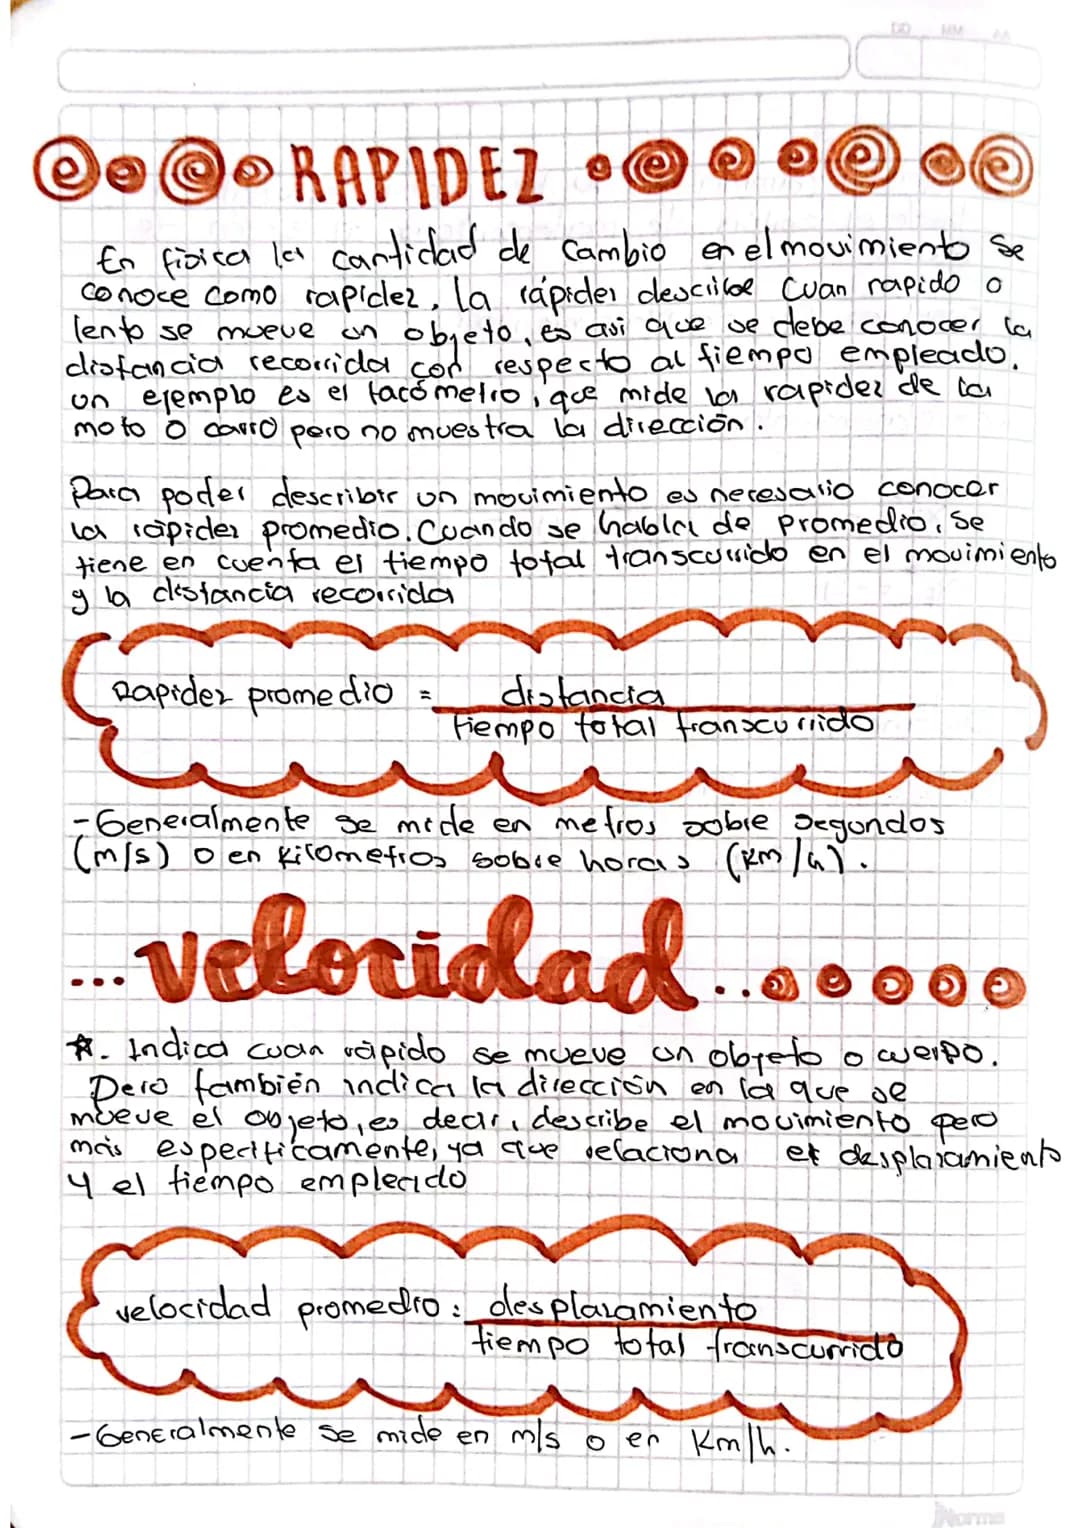 DD MM AA
RAPIDEZ
En física la cantidad de cambio en el movimiento se
conoce como rapidez, la rápidez describe cuan rapido o
lento se mueve un objeto, es asi que se debe conocer la
distancia recorrida con respecto al tiempo empleado.
un ejemplo es el tacómetro, que mide la rapidez de la
moto o carro pero no muestra la dirección.
Para poder describir un movimiento es necesario conocer
la rápidez promedio. Cuando se habla de promedio, se
tiene en cuenta el tiempo total transcurrido en el movimiento
y la distancia recorrida
Rapidez promedio = distancia
tiempo total transcurrido
- Generalmente se mide en metros sobre segundos
(m/s) o en kilometros sobre horas (km/h).
...velocidad...
. Indica cuan rápido se mueve un objeto o cuerpo.
Pero también indica la dirección en la que se
mueve el objeto, es decir, describe el movimiento pero
más especificamente, ya que relaciona el desplazamiento
y el tiempo empleado
velocidad promedio: desplazamiento
tiempo total transcurrido
- Generalmente se mide en m/s o en Km/h.
Norma